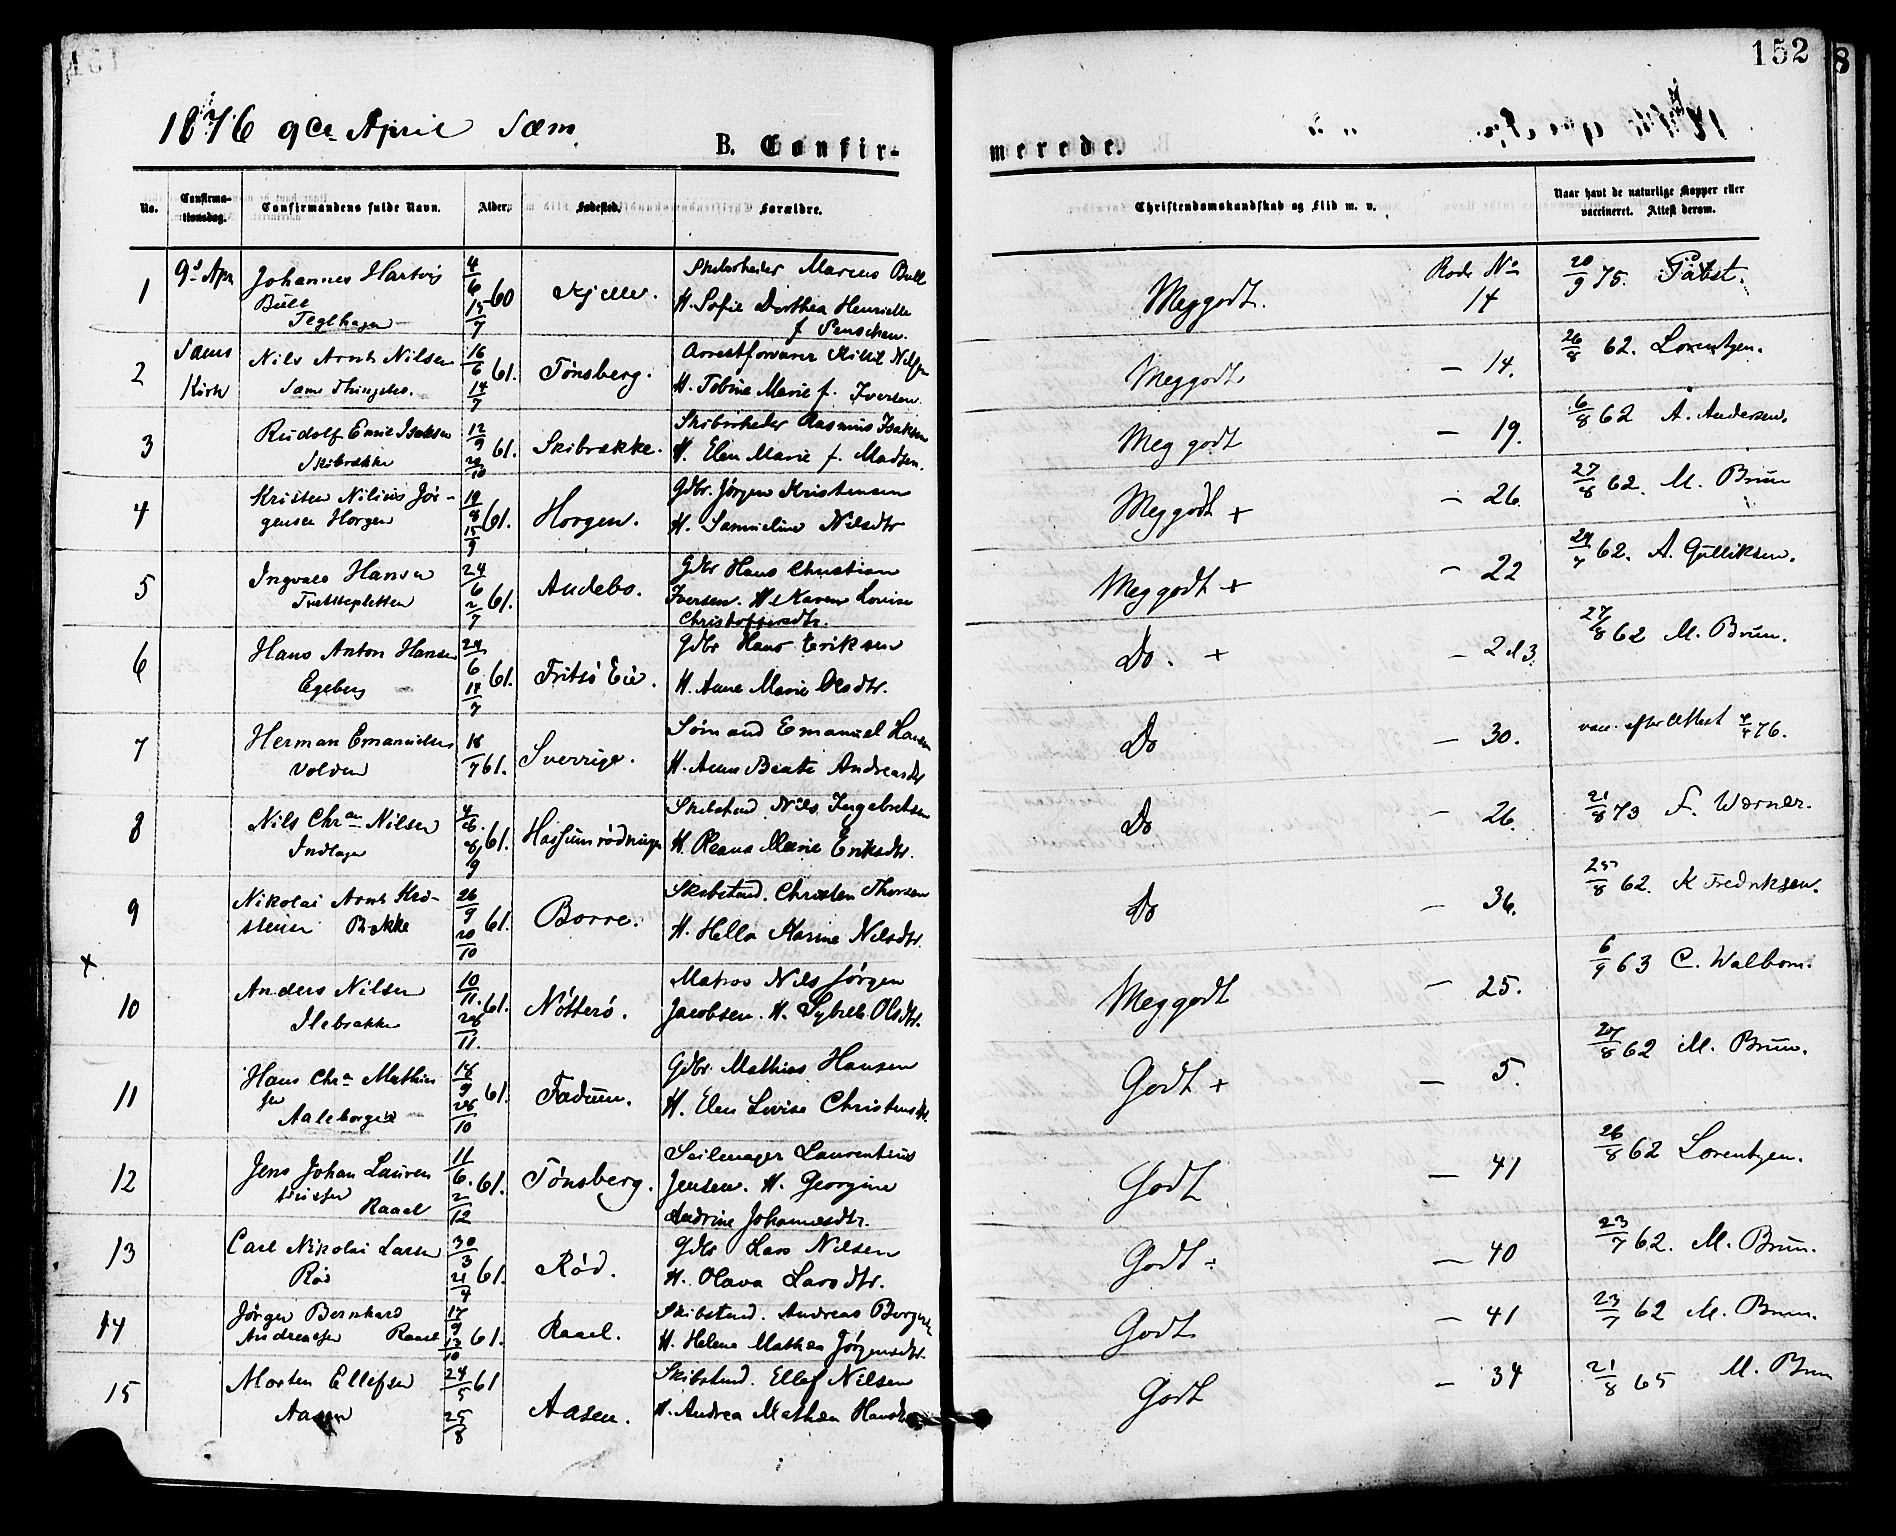 152
1876 9de April Sæm.
B. Confir-
merede.
No.
Confirma-
tionsdag.
Confirmandens fulde Navn.
Alder.
Fødested.
Forældre.
Christendomskundskab og Flid m. v.
Naar havt de naturlige Kopper eller
vaccineret. Attest derom.
1 9d Apr Johannes Hartvig
Bull
Teglhagen
4/6 15/7 60 Kjelle.
Marcus Bull
H. Sofie Dorthea Henriette
f
Meg godt. Rode No
14
20/9 75. Pabst.
2 Sæms
Kirke
Nils Arnt Nilsen
Sæm Thingsted.
16/6 14/7 61. Tønsberg.
Arrestforvarer Nilsen
H. Tobine Marie f. Iversen.
Meg godt — 14. 26/8 62. Lorentzen.
3 Rudolf Emil Isaksen
Skibrække
12/9 61. Skibrække.
Rasmus Isaksen
H. Elen Marie f. Madsen.
Meg godt — 19. 6/8 62 A. Andersen.
4 Kristen Nilius Jør-
gensen Horgen
19/8 15/9 61. Horgen.
Gdbr. Jørgen Kristensen
H. Samueline Nilsdtr
Meg godt + — 26. 27/8 62. M. Bruun
5 Ingvald Hansen
24/6 2/7 61. Andebo.
Gdbr Hans Christian
Iversen. H. Karen Lovise
Christoffersdtr.
Meg godt + — 22 62. A. Gulliksen.
6 Hans Anton Hansen
Egeberg
24/6 14/7 61. Fritsö Eie.
Gdbr Hans Eriksen
H. Anne Marie Olsdtr.
Do. + — 2 d 3. 27/8 62 M. Bruun.
7 Herman Emanuelsen
Volden
18/7 61. Sverrige.
Sømand Emanuel
H. Anna Beate Andreasdtr
Do — 30. vacc. efter Attest 4/4 76.
8 Nils Chran Nilsen
Indlagen
4/6. 8/9 61.
Skibstmd. Nils Ingebretsen
H. Marie Eriksdtr.
Do — 26. 21/8 73 F. Werner.
9 Nikolai Arnt Kri-
stensen Bække
26/9 20/10 61. Borre.
Skibstmd. Christen Thorsen
H. Hella Karine Nilsdtr.
Do — 36. 25/8 62. K Fredriksen.
x
10 Anders Nilsen
Ilebrække
10/11. 28/11. 61. Nøtterö.
Matros Nils Jørgen
Jacobsen. H. Olsdtr.
Meg godt — 25. 6/9 63 C. Walbom.
11 Hans Chra Mathis
sen
Aaleborgen
18/9 28/10 61. Fadum.
Gdbr. Mathias Hansen
H. Elen Lovise Christensdtr
Godt + — 5. 27/8 62 M. Bruun.
12 Jens Johan Lauren
tiussen
Raael
11/6. 2/12 61. Tønsberg.
Seilmager Laurentius
Jensen. H. Georgine
Andrine Johannesdtr.
Godt — 41 26/8 62 Lorentzen.
13 Carl Nikolai Larsen
Röd
30/3 21/4 61. Rød.
Gdbr Lars Nilsen
H. Olava Larsdtr.
Godt ÷ — 40 23/7 62. M. Bruun.
14 Jørgen Bernhard
Andreassen Raael
17/9 13/10 61. Raael.
Skibstmd. Andreas
H. Helene Mathea Jørgensdtr.
Godt — 41 23/7 62 M. Bruun.
15 Morten Ellefsen
Aasen
24/5 25/8 61 Aasen.
Skibstmd. Ellef Nilsen
H. Andrea Mathea Hansdtr
Godt — 34 21/8 65 M. Bruun